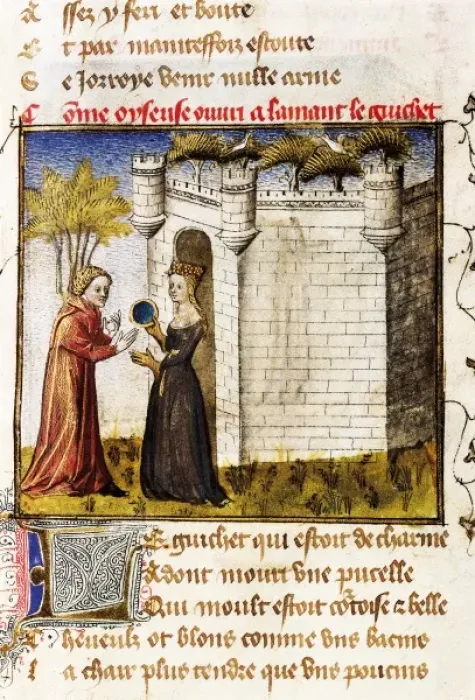 A ssez y feri et boute
E t par mainteffoiz escoute
S e jorroye venir nulle arme
Cōme oyseuse ouuri a lamant le guichet
LE guichet qui estoit de charme
Adont mouri vne pucelle
Qui moult estoit co'toise & belle
C heueulz ot blons comme vns bacins
L a chair plus tendre que vns poucins